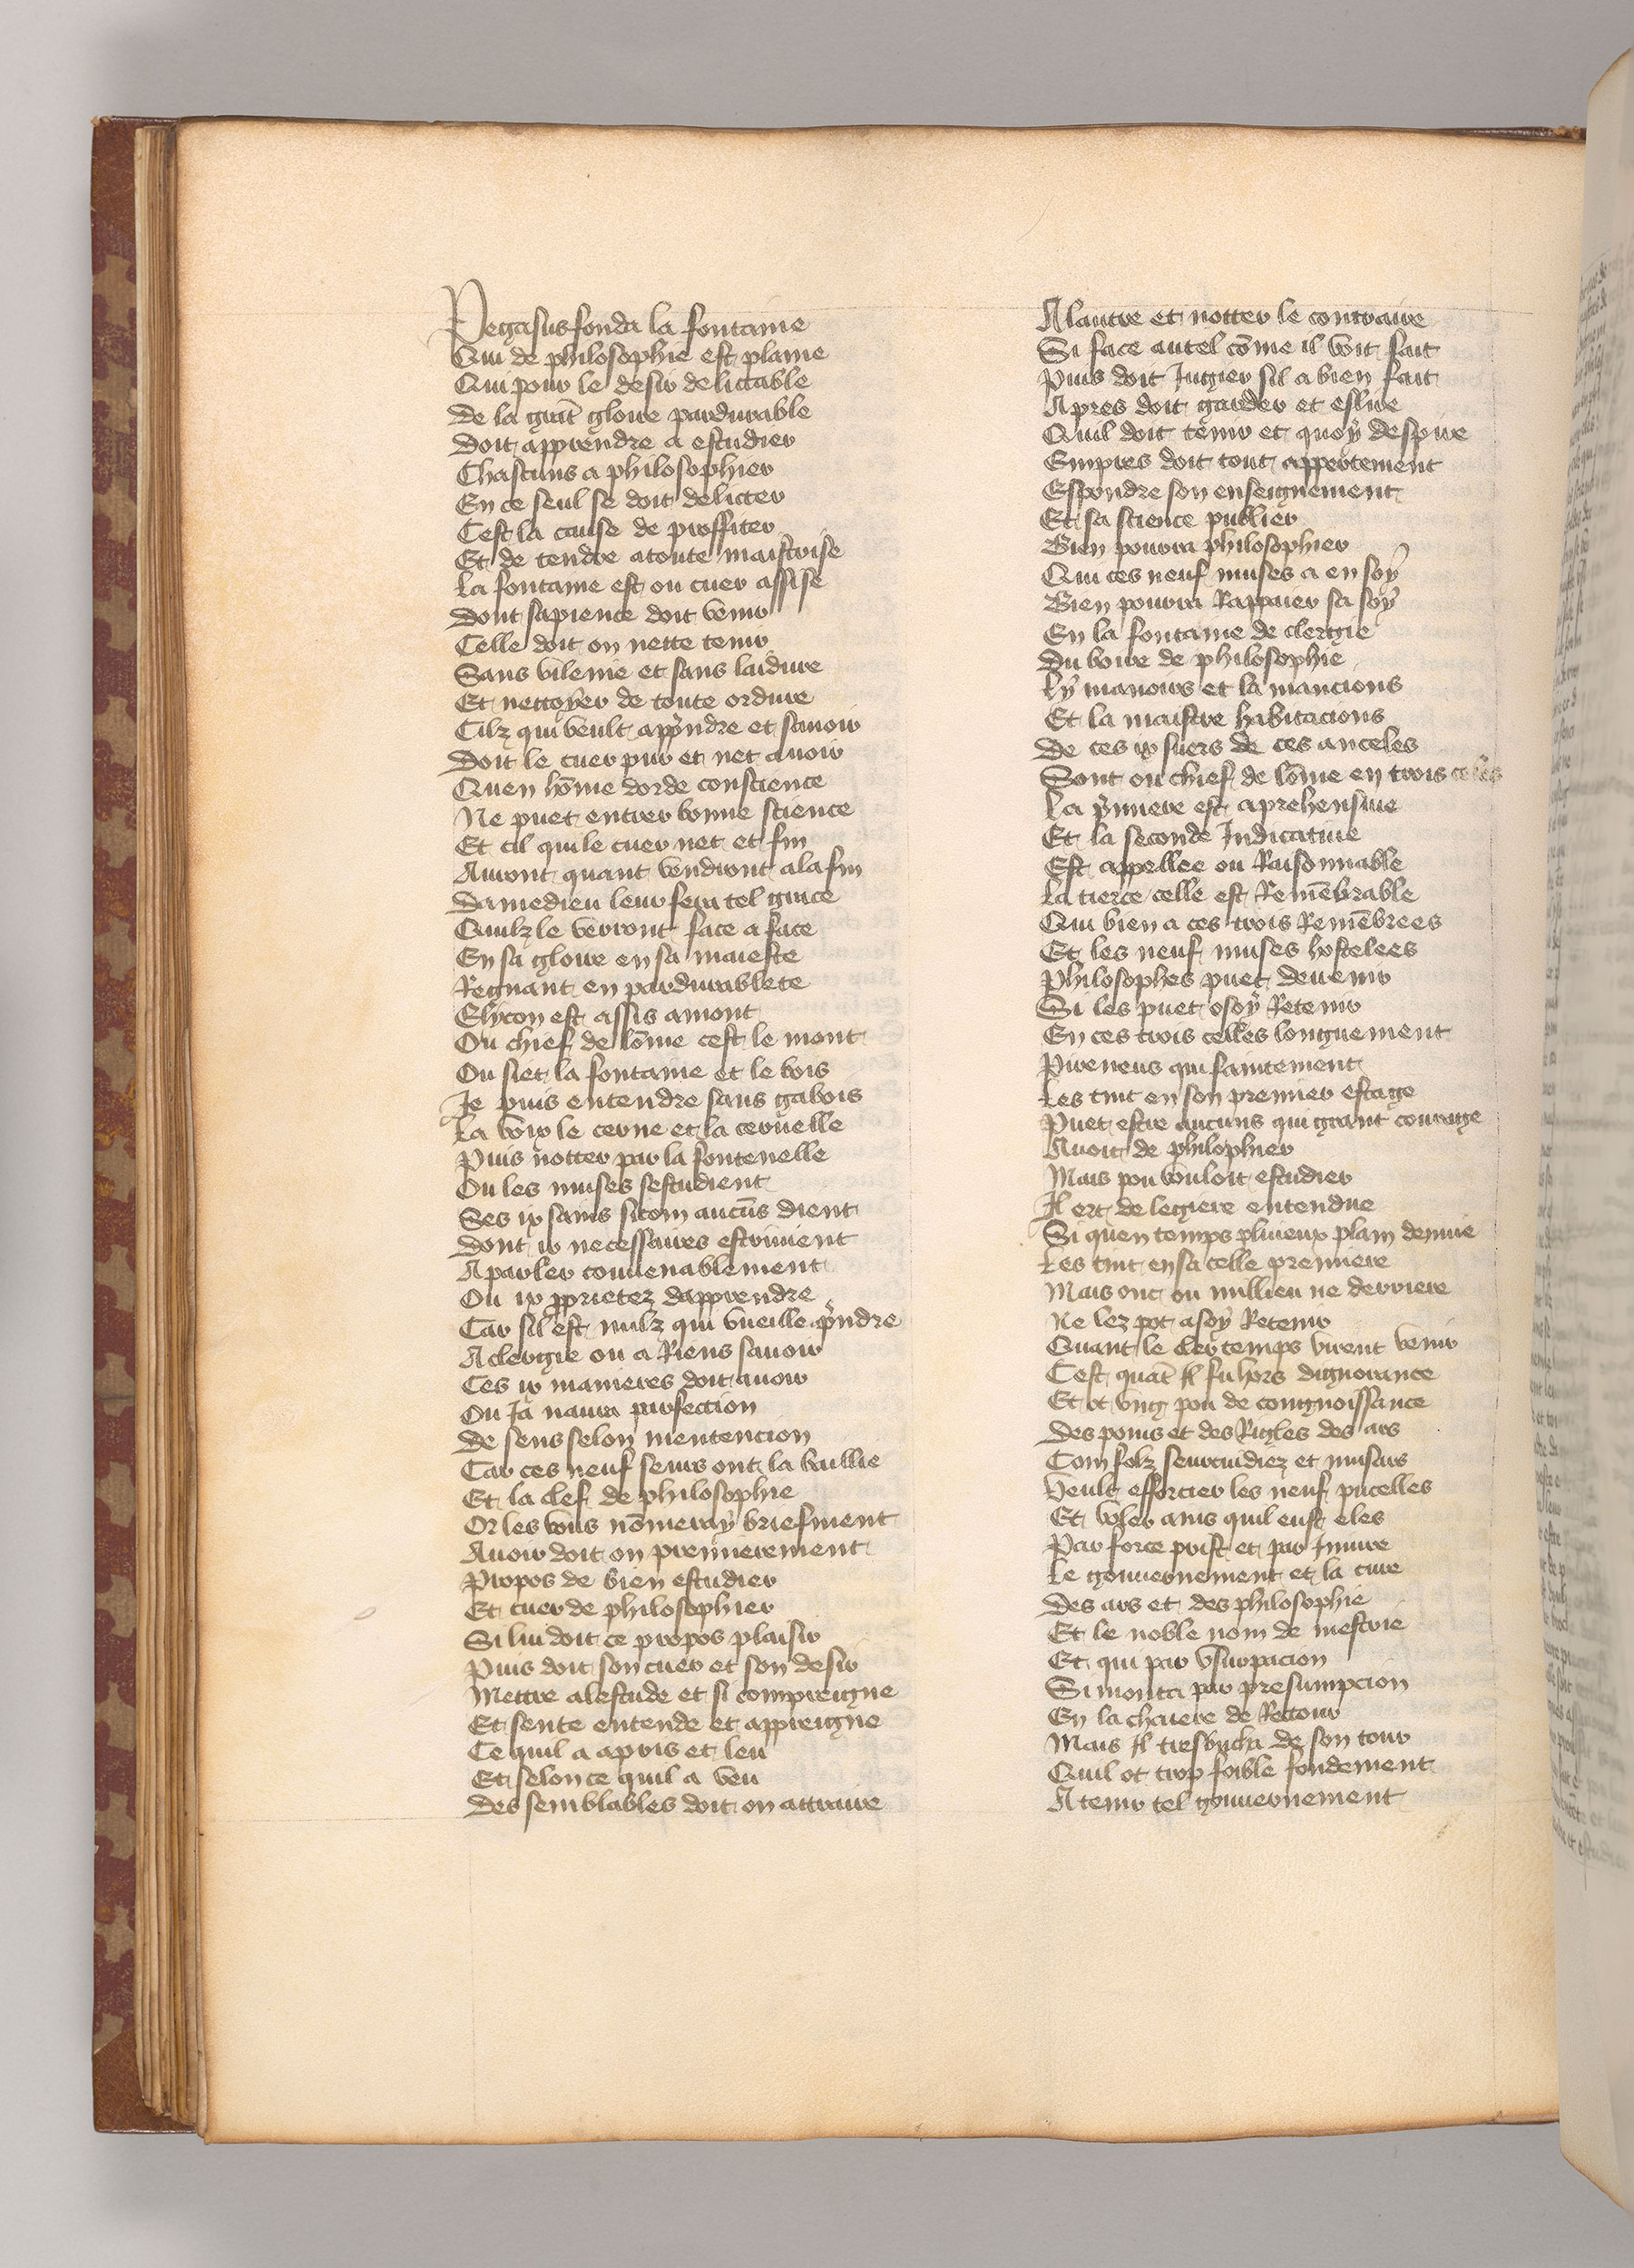 Pegasus fonda la fontaine
Qui de philosophie est plaine
Qui pour le desir delictable
De la grāt gloire pardurable
Doit apprendre a estudier
Chascuns a philosophier
En ce seul se doit delicter
Cest la cause de proffiter
Et de tendre a toute maistrise
La fontaine est ou cuer assise
Dont sapience doit venir
Celle doit on nette tenir
Sans vilenie et sans laidure
Et nettoyer de toute ordure
Cilz qui veult app̄ndre et sauoir
Doit le cuer pur et net auoir
Quen hōme dorde conscience
Ne puet entrer bonne science
Et cil qui le cuer net et fin
Auront quant vendront a la fin
Damedieu leur fera tel grace
Quilz le verront face a face
En sa gloire en sa maieste
Regnant en pardurablete
Elycon est assis amont
Ou chief de lōme cest le mont
Ou siet la fontaine et le bois
Je puis entendre sans gabois
La voix le cerne et la ceruelle
Puis notter par la fontenelle
Ou les muses sestudient
Ses ix sains sicom aucūs dient
Dont ix necessaires escriuient
A parler conuenablement
Ou ix pprietez dapprendre
Car sil est nulz qui vueille p̄ndre
A clergie ou a Riens sauoir
Ces ix manieres doit auoir
Ou Ja naura parfection
De sens selon mentencion
Car ces neuf seurs ont la baillie
Et la clef de philosophie
Or les vous nōmeray briefment
Auoir doit on premierement
Propos de bien estudier
Et cuer de philosophier
Si lui doit ce propos plaisir
Puis doit son cuer et son desir
Mettre a lestude et si compreigne
Et sente entende et appreigne
Ce quil a apris et leu
Et selon ce quil a veu
Des semblables doit on attraire
A lautre et notter le contraire
Si face autel cōme il voit fait
Puis doit Jugier sil a bien fait
Apres doit garder et eslire
Quil doit tenir et quoy despire
Empres doit tout appertement
Espondre son enseignement
Et sa science publier
Bien pourra philosophier
Qui ces neuf muses a en soy
Bien pourra Rappaier sa soy
En la fontaine de clergie
Du boire de philosophie
Ly manoirs et la mancions
Et la maistre habitacions
De ces ix suers de ces anceles
Sont ou chief de lōme en trois celles
La p̄miere est aprehensiue
Et la seconde Indicatiue
Est appellee ou Raisonnable
La tierce celle est Remēbrable
Qui bien a ces trois Remēbrees
Et les neuf muses hostelees
Philosophes puet deuenir
Si les puet o soy Retenir
En ces trois celles longuement
Pireneus qui faintement
Les tint en son premier estage
Puet estre aucuns qui grant courage
Auoit de philophier
Mais pou vouloit estudier
Il ert de legiere entendue
Si quen temps pluieux plain de nue
Les tint en sa celle premiere
Mais onc ou millieu ne derriere
Ne lez pot a soy Retenir
Quant le cler temps virent venir
Cest quāt Il fu hors dignorance
Et ot vng pou de congnoissance
Des poins et des Rigles des ars
Com folz seurcuidiez et musars
Veult efforcier les neuf pucelles
Et voler ains quil eust eles
Par force prist et par Iniure
Le gouuernement et la cure
Des ars et des philosophie
Et le noble nom de mestrie
Et qui par vsurpacion
Si monta par presumpcion
En la chaiere de Rettour
Mais Il tresbucha de son tour
Quil ot trop foible fondement
A tenir tel gouuernement